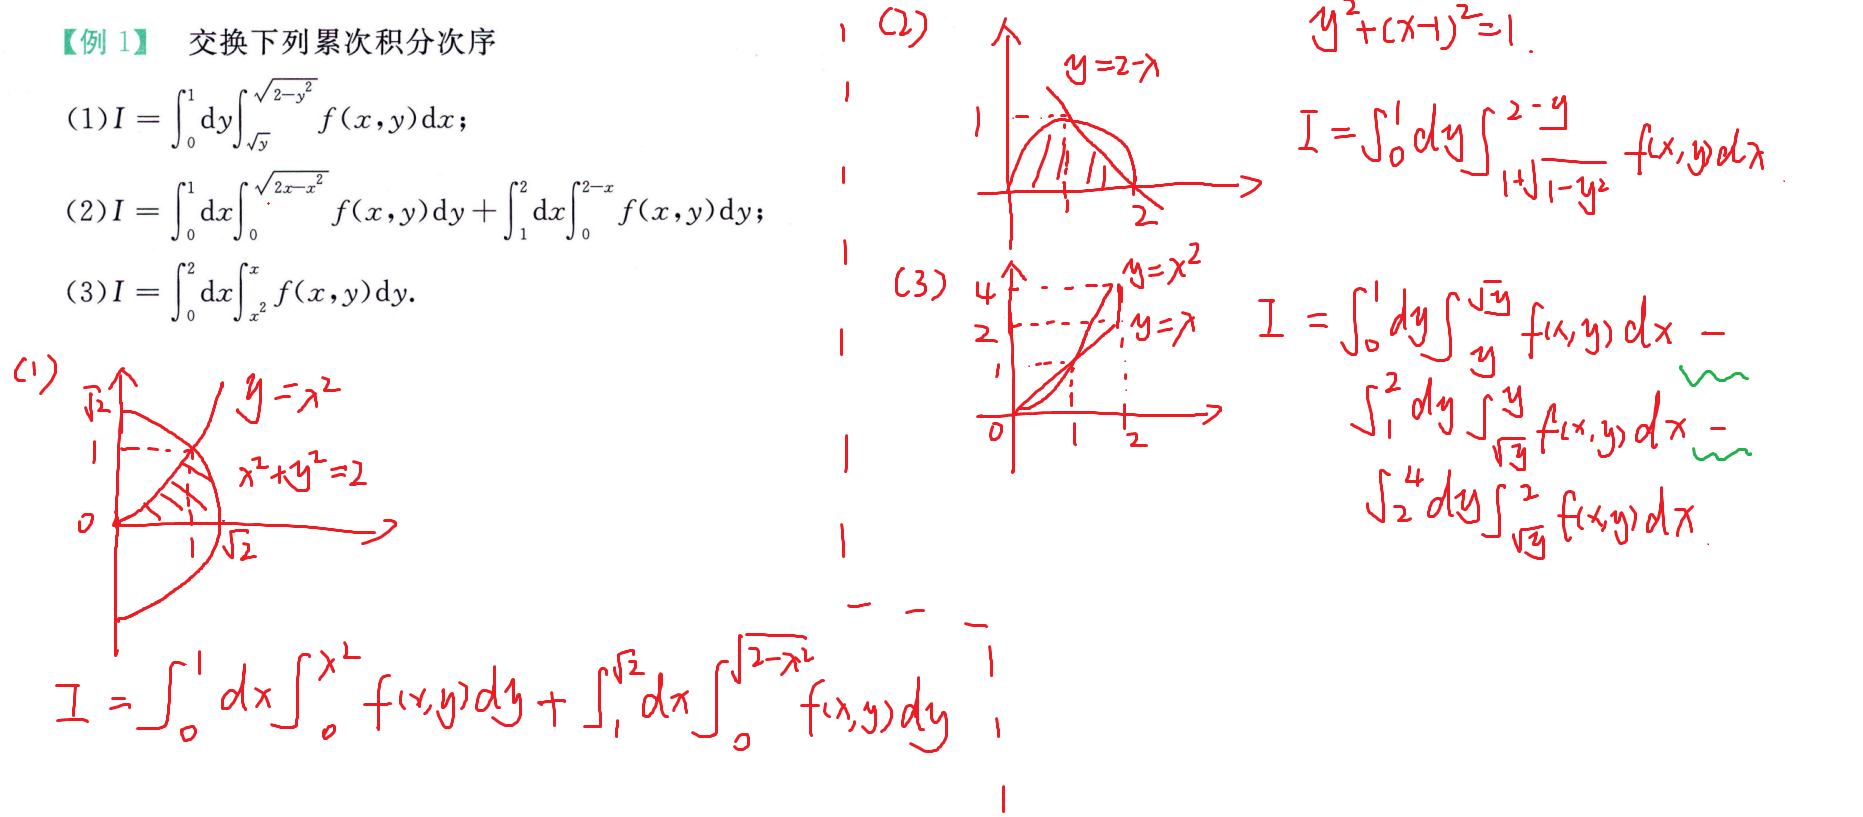 【例 1】 交换下列累次积分次序
(1) I = ∫₀¹ dy ∫_{√y}^{√(2−y²)} f(x,y)dx;
(2) I = ∫₀¹ dx ∫₀^{√(2x−x²)} f(x,y)dy + ∫₁² dx ∫₀^{2−x} f(x,y)dy;
(3) I = ∫₀² dx ∫_{x²}^{x} f(x,y)dy.
(1)
√2
y=x²
1
x²+y²=2
0
1 √2
I = ∫₀¹ dx ∫₀^{x²} f(x,y)dy + ∫₁^{√2} dx ∫₀^{√(2−x²)} f(x,y)dy
(2)
y=2-x
1
1 2
y²+(x-1)²=1.
I = ∫₀¹ dy ∫_{1+√(1−y²)}^{2−y} f(x,y)dx
(3)
4 y=x²
2 y=x
1
0 1 2
I = ∫₀¹ dy ∫_{y}^{√y} f(x,y)dx −
∫₁² dy ∫_{√y}^{y} f(x,y)dx −
∫₂⁴ dy ∫_{√y}^{2} f(x,y)dx